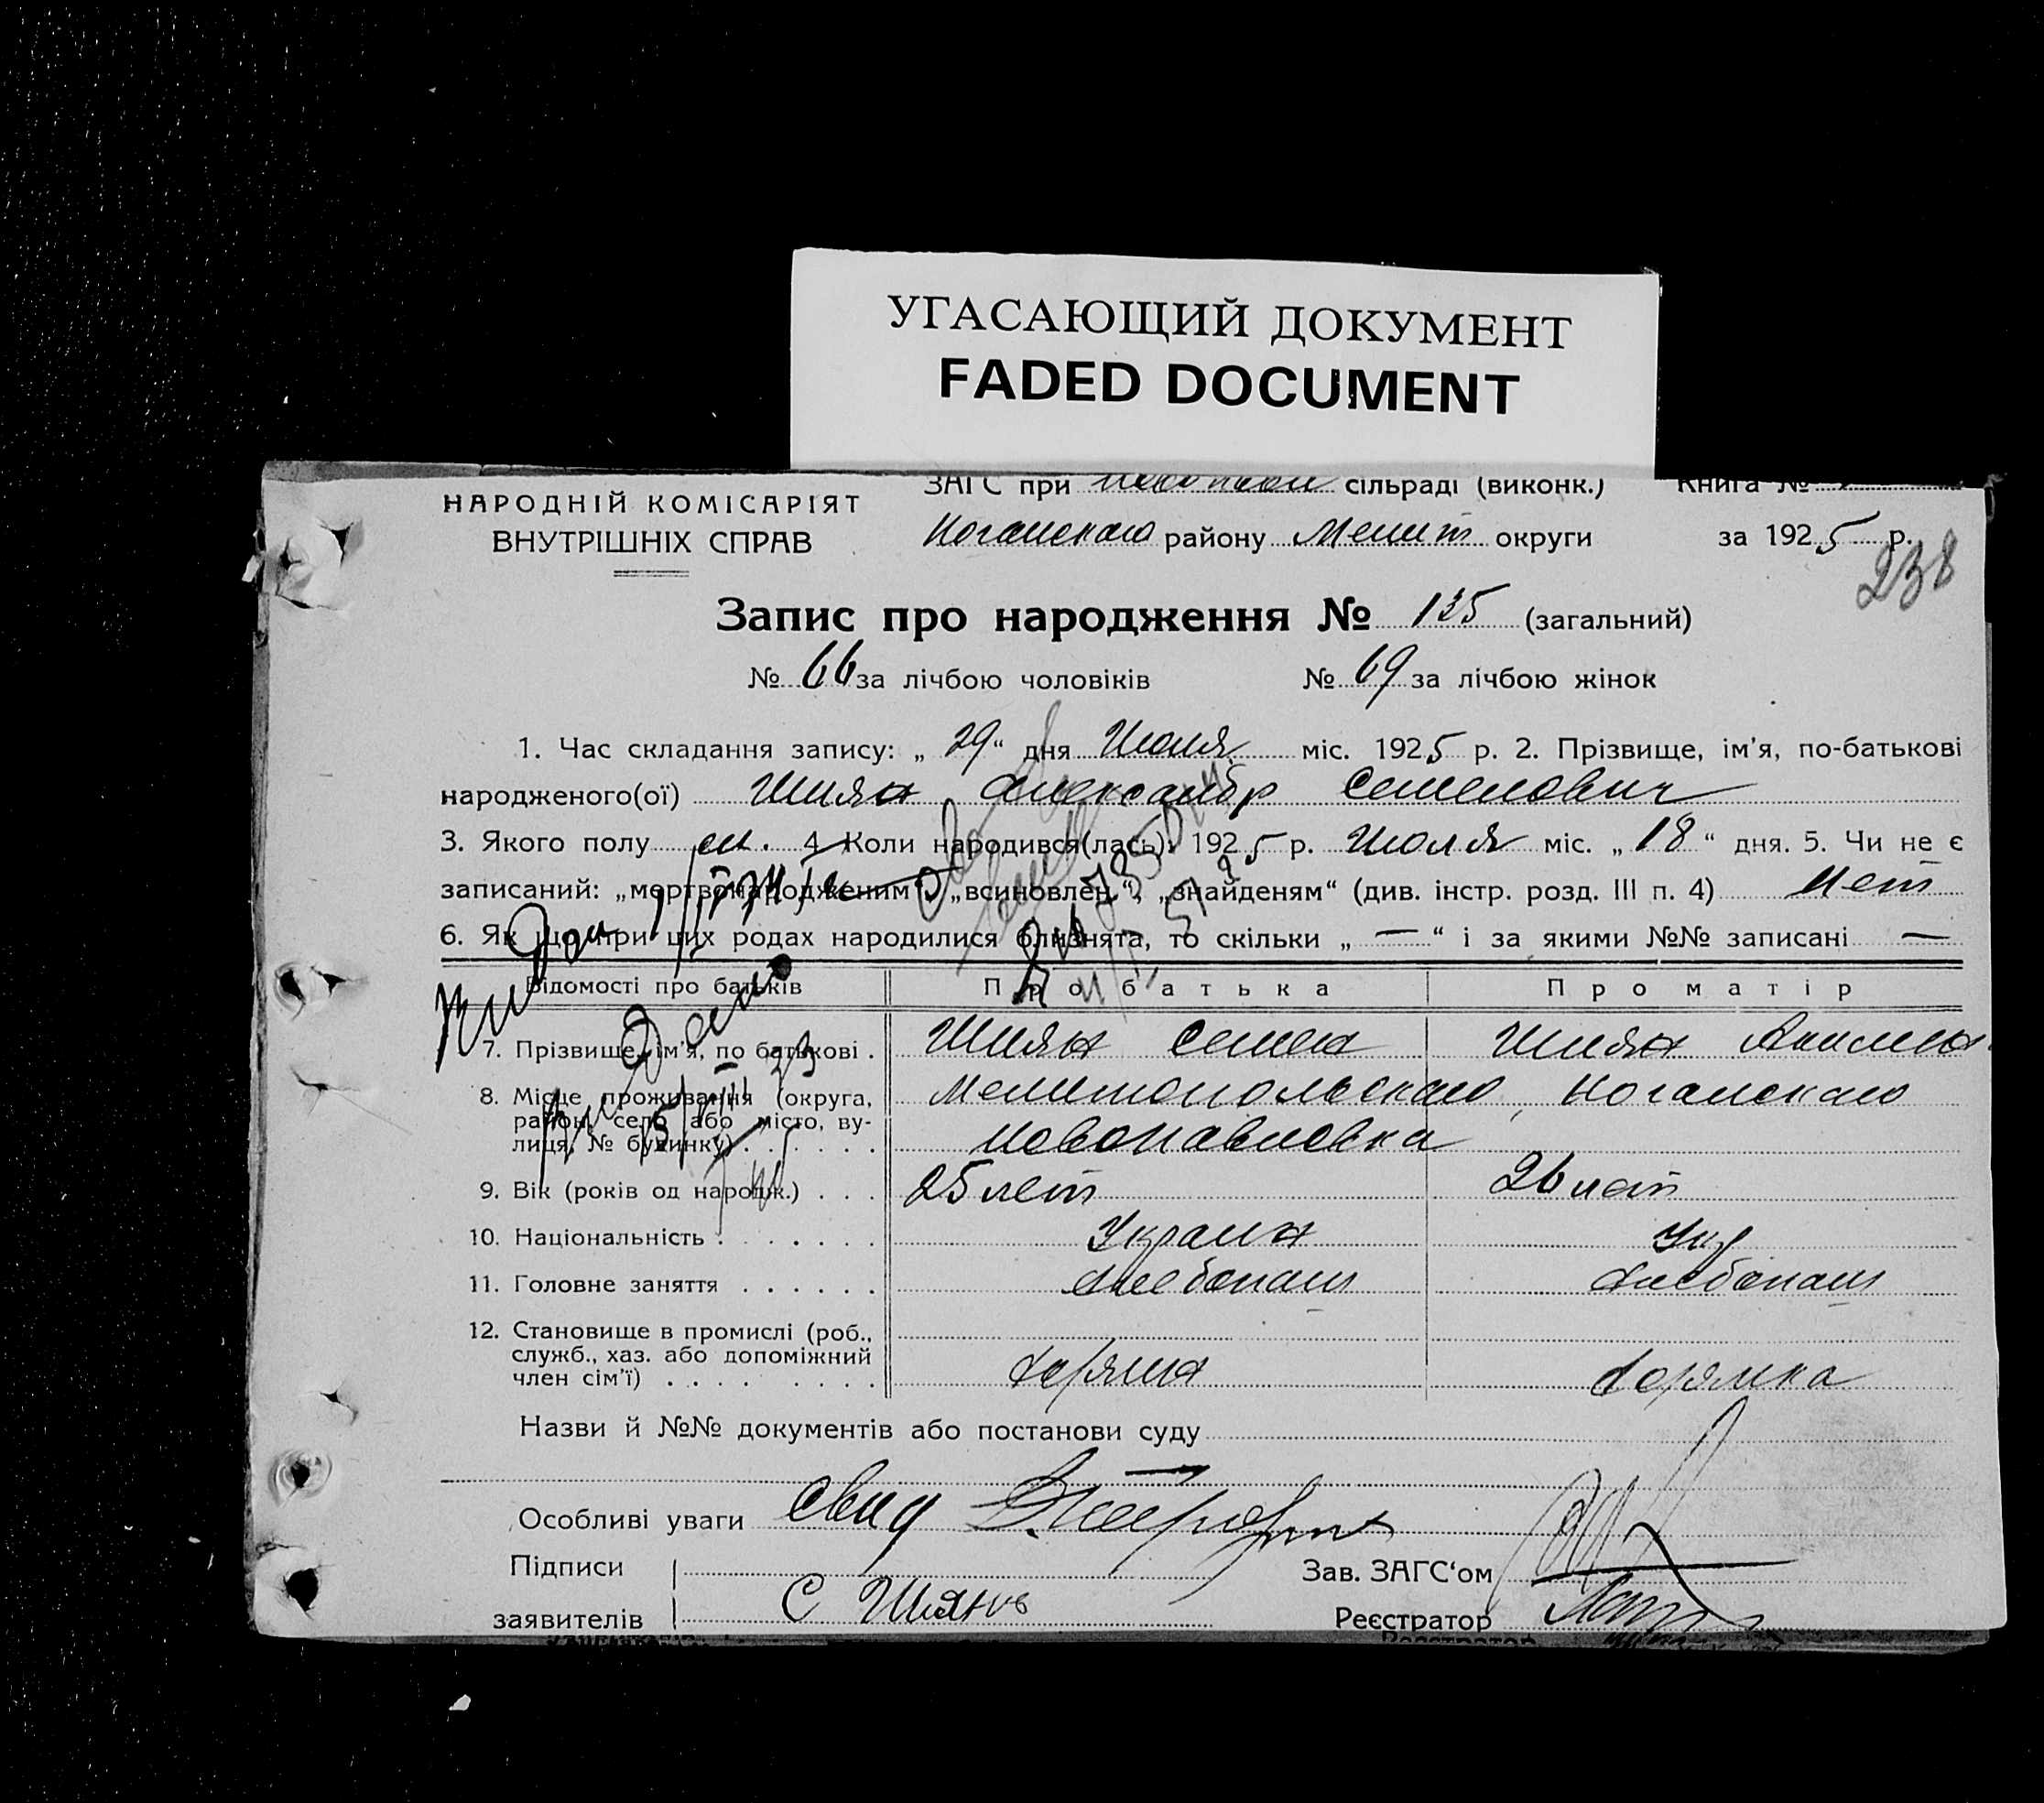 УГАСАЮЩИЙ ДОКУМЕНТ
FADED DOCUMENT
НАРОДНІЙ КОМІСАРІЯТ
ВНУТРІШНІХ СПРАВ
ЗАГС при сільраді (виконк.) Книга №
Ногайского району Мелит округи за 1925 р.
238
Запис про народження № 135 (загальний)
№ 66 за лічбою чоловіків № 69 за лічбою жінок
1. Час складання запису: „ 29 “ дня Июля міс. 1925 р. 2. Прізвище, ім'я, по-батькові
народженого(ої) Шиян Александр Семенович
3. Якого полу м. 4. Коли народився(лась): 1925 р. Июля міс. „ 18 “ дня. 5. Чи не є
записаний: „мертвонародженим“, „всиновлен.“, „знайденям“ (див. інстр. розд. III п. 4) Нет
6. Як що при цих родах народилися близнята, то скільки „ — “ і за якими №№ записані —
Відомості про батьків Про батька Про матір
7. Прізвище, ім'я, по батькові . Шиян Семен Шиян Акилина
8. Місце проживання (округа, район, село або місто, вулиця, № будинку) . . . . . . Мелитопольского, Ногайского
Новопавловка
9. Вік (років од народж.) . . . 25 лет 26 лет
10. Національність . . . . . . . Украин Укр
11. Головне заняття . . . . . . Хлебопаш Хлебопаш
12. Становище в промислі (роб.,
служб., хаз. або допоміжний
член сім'ї) . . . . . . . . Хозяин Хозяйка
Назви й №№ документів або постанови суду
—
Особливі уваги Свид
Підписи Зав. ЗАГС‘ом
заявителів С Шиянъ Реєстратор